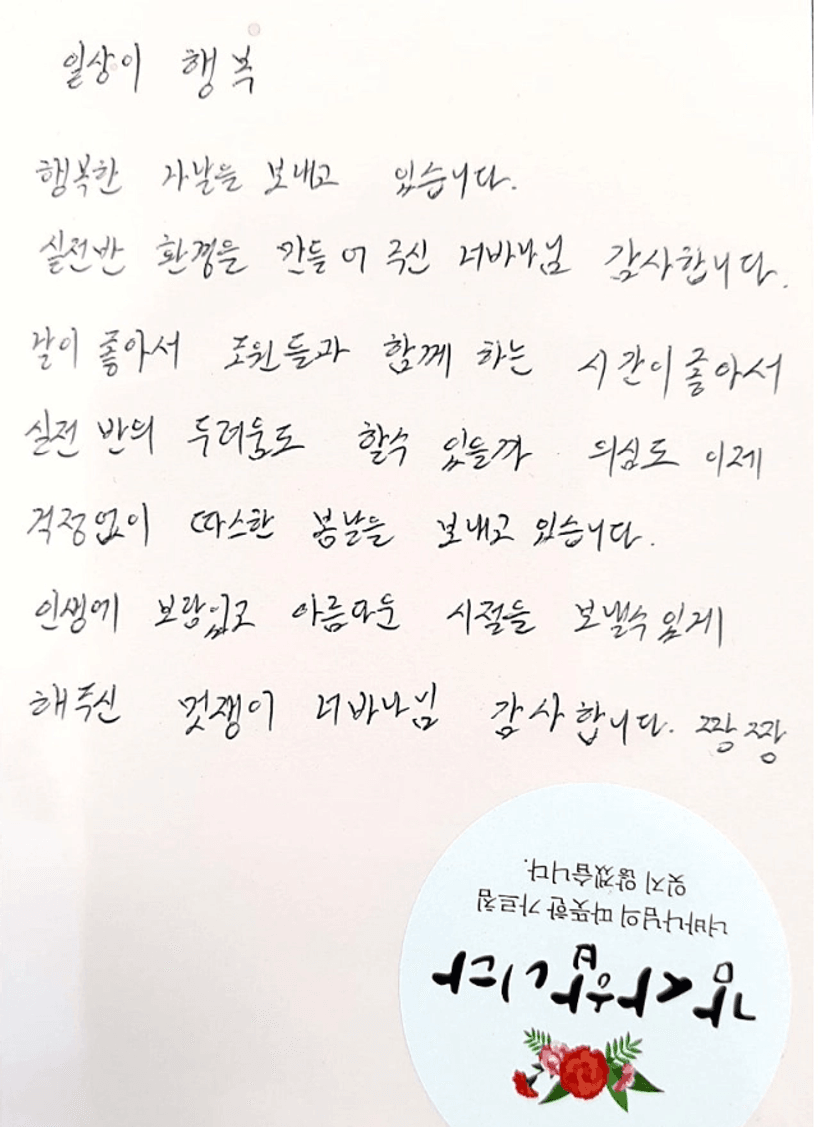 일상이 행복
행복한 나날을 보내고 있습니다.
실전반 환경을 만들어 주신 너바나님 감사합니다.
같이 좋아서 조원들과 함께 하는 시간이 좋아서
실전 반의 두려움도 할수 있을까 의심도 이제
걱정없이 따스한 봄날을 보내고 있습니다.
인생에 보람있고 아름다운 시절들 보낼수 있게
해주신 멋쟁이 너바나님 감사합니다. 짱짱
감사합니다
너바나님의 따뜻한 가르침
잊지 않겠습니다.